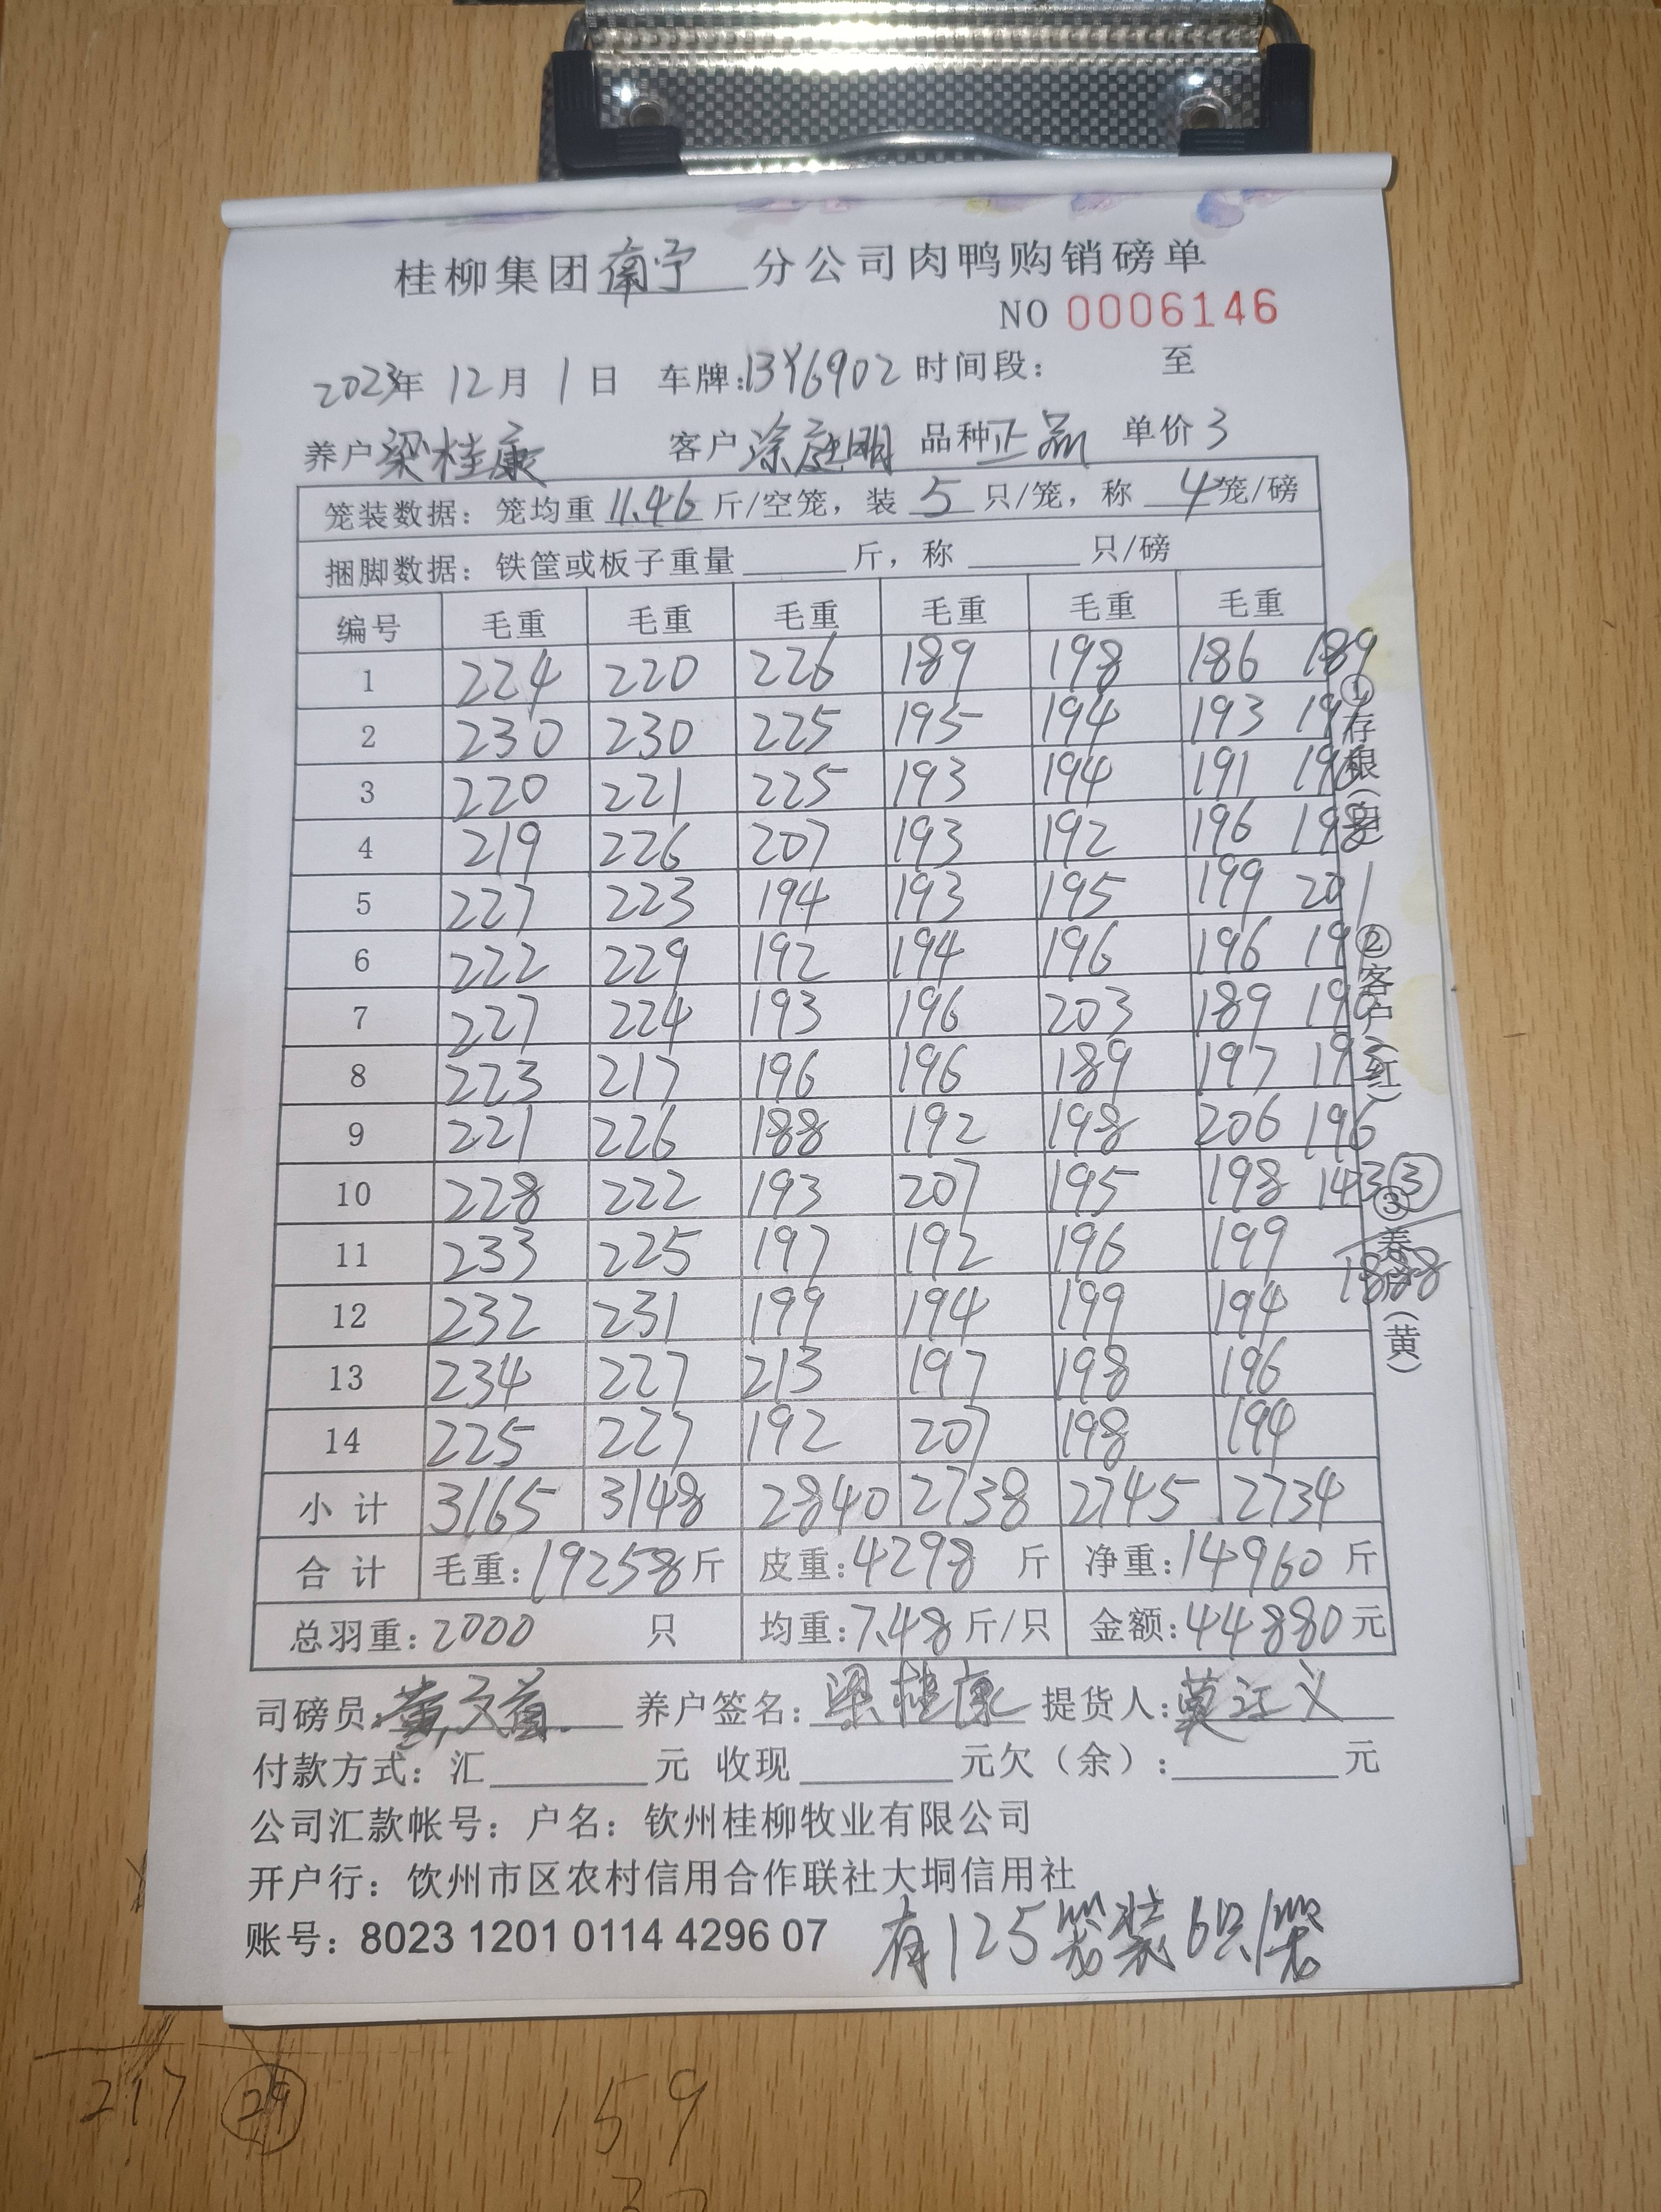 桂柳集团南宁分公司肉鸭购销磅单
NO 0006146
2023年 12月 1日 车牌:13Y6902 时间段: 至
养户梁桂康 客户涂庭明 品种正品 单价3
笼装数据: 笼均重 11.46 斤/空笼, 装 5 只/笼, 称 4笼/磅
捆脚数据: 铁筐或板子重量 斤, 称 只/磅
编号 毛重 毛重 毛重 毛重 毛重 毛重
1 224 220 226 189 198 186 189
2 230 230 225 195 194 193
3 220 221 225 193 194 191
4 219 226 207 193 192 196 198
5 227 223 194 193 195 199 201
6 222 229 192 194 196 196
7 227 224 193 196 203 189
8 223 217 196 196 189 197
9 221 226 188 192 198 206 196
10 228 222 193 207 195 198 143 ③
11 233 225 197 192 196 199
12 232 231 199 194 199 194 1888
13 234 227 213 197 198 196
14 225 227 192 207 198 194
小计 3165 3148 2840 2738 2745 2734
合计 毛重:19258斤 皮重:4298 斤 净重:14960斤
总羽重:2000 只 均重:7.48斤/只 金额:44880元
司磅员: 养户签名:梁桂康 提货人:莫江义
付款方式: 汇 元 收现 元欠（余）: 元
公司汇款帐号: 户名: 钦州桂柳牧业有限公司
开户行: 饮州市区农村信用合作联社大垌信用社
账号: 8023 1201 0114 4296 07 有125笼装6只/笼
①存根
②客户(红)
③养户(黄)
217 29 159